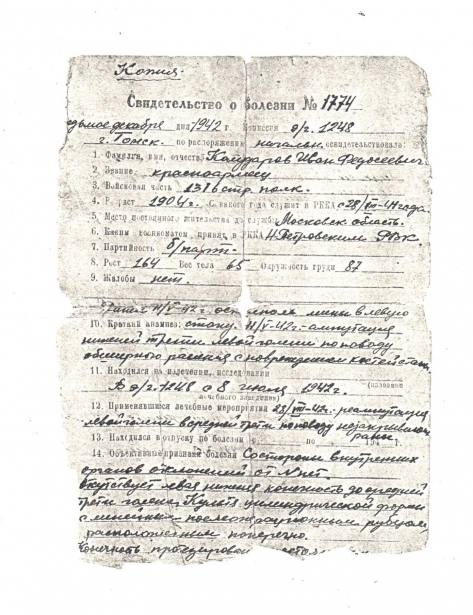 Копия.
Свидетельство о болезни № 1774
седьмое декабря дня 1942 г Комиссия э/г. 1248
г. Томск. по распоряжению начальн. освидетельствовала:
1. Фамилия, имя, отчество Иван Федосеевич
2. Звание красноармеец
3. Войсковая часть 1316 стр. полк.
4. Возраст 1904 г. С какого года служит в РККА с 28/VIII-41 года
5. Место постоянного жительства до службы Московск область.
6. Каким военкоматом принят в РККА Н. Петровским РВК.
7. Партийность б/парт.
8. Рост 164 Вес тела 65 Окружность груди 87
9. Жалобы нет.
Ранен /V-42 г. мины в левую
10. Краткий анамнез: стопу. 11/V-42г. ампутация
нижней трети левой голени по поводу
обширного ранения с повреждением костей стопы
11. Находился на излечении, исследовании
В э/г. 1248 с 8 июля 1942 г. (название
лечебного заведения)
12. Применявшиеся лечебные мероприятия 28/VIII-42г. реампутация
левой голени в средней трети по поводу незаживающей
раны
13. Находился в отпуску по болезни с по 194 г.
14. Объективные признаки болезни Со стороны внутренних
органов отклонений от N нет.
Отсутствует левая нижняя конечность до средней
трети голени. Культя цилиндрической формы
с линейным послеоперационным рубцом
расположенным поперечно.
Конечность